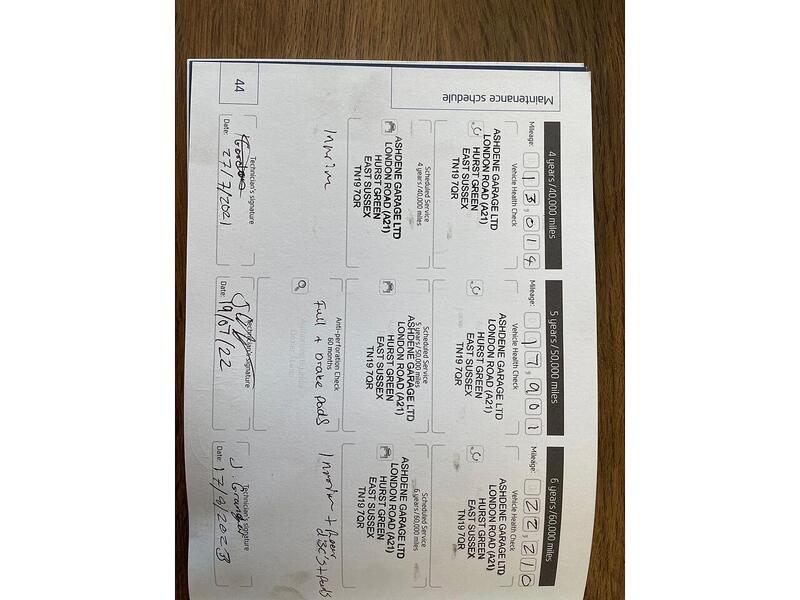 Maintenance schedule
44
4 years/40,000 miles
Mileage: 13,014
Vehicle Health Check
ASHDENE GARAGE LTD
LONDON ROAD (A21)
HURST GREEN
EAST SUSSEX
TN19 7QR
Scheduled Service
4 years/40,000 miles
ASHDENE GARAGE LTD
LONDON ROAD (A21)
HURST GREEN
EAST SUSSEX
TN19 7QR
Technician's signature
Date: 27/7/2021
5 years/50,000 miles
Mileage: 17,901
Vehicle Health Check
ASHDENE GARAGE LTD
LONDON ROAD (A21)
HURST GREEN
EAST SUSSEX
TN19 7QR
Scheduled Service
5 years/50,000 miles
ASHDENE GARAGE LTD
LONDON ROAD (A21)
HURST GREEN
EAST SUSSEX
TN19 7QR
Anti-perforation Check
60 months
Full + brake pads
Technician's signature
Date: 19/07/22
6 years/60,000 miles
Mileage: 22,210
Vehicle Health Check
ASHDENE GARAGE LTD
LONDON ROAD (A21)
HURST GREEN
EAST SUSSEX
TN19 7QR
Scheduled Service
6 years/60,000 miles
ASHDENE GARAGE LTD
LONDON ROAD (A21)
HURST GREEN
EAST SUSSEX
TN19 7QR
Technician's signature
Date: 17/8/2023